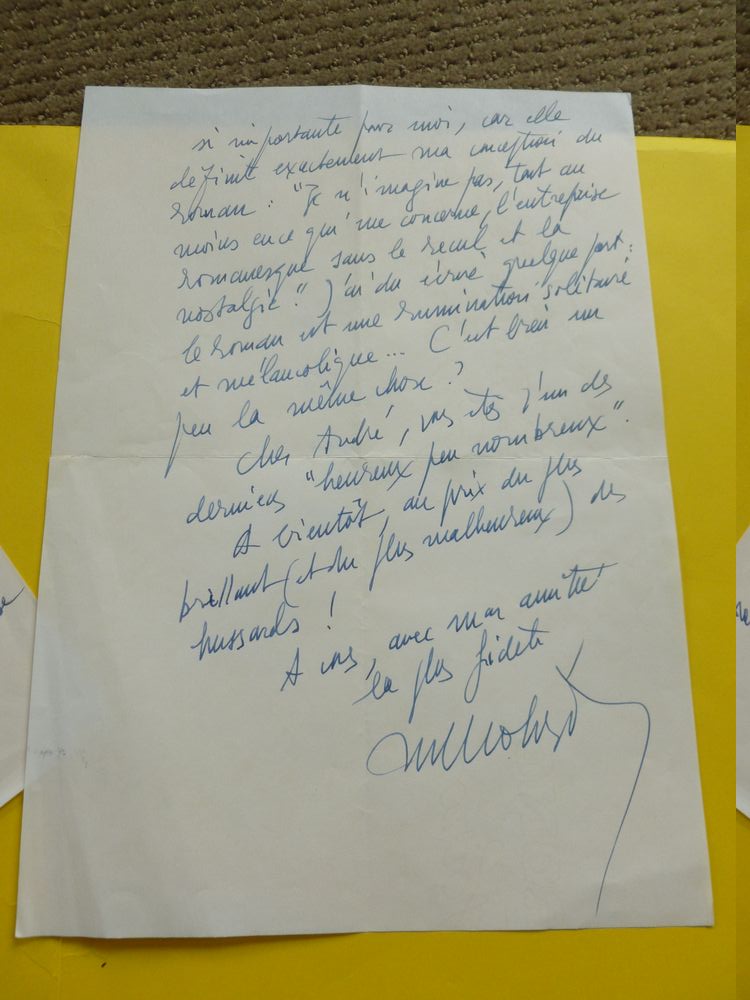 si importante pour moi, car elle
définit exactement ma conception du
roman : "Je n'imagine pas, tout au
moins en ce qui me concerne, l'entreprise
romanesque sans le recul et la
nostalgie." J'ai dû écrire quelque part :
le roman est une rumination solitaire
et mélancolique... C'est bien un
peu la même chose ?
Cher André, vous êtes l'un des
derniers "heureux peu nombreux".
A bientôt, au prix du plus
brillant (et du plus malheureux) des
hussards !
A vous, avec mon amitié
la plus fidèle